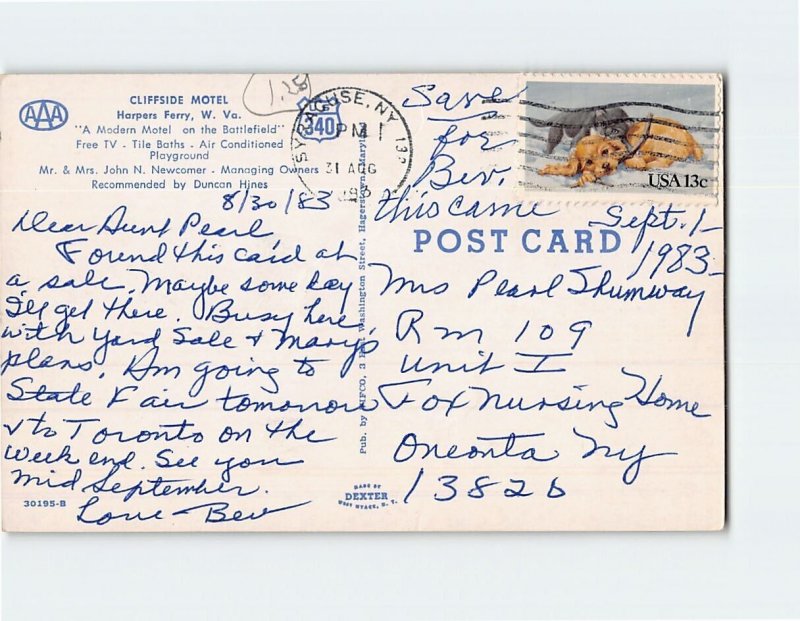 CLIFFSIDE MOTEL
Harpers Ferry, W. Va.
"A Modern Motel on the Battlefield"
Free TV - Tile Baths - Air Conditioned
Playground
Mr. & Mrs. John N. Newcomer - Managing Owners
Recommended by Duncan Hines
AAA
340
1.25
SYRACUSE, NY 132
PM
31 AUG
1983
USA 13c
Save
for
Bev.
this came Sept. 1-
1983-
POST CARD
8/30/83
Dear Aunt Pearl
Found this card at
a sale. Maybe some day
I'll get there. Busy here,
with yard Sale & Mary's
plans. Am going to
State Fair tomorrow
& to Toronto on the
week end. See you
mid September.
Love Bev
Mrs Pearl Shumway
Rm 109
Unit I
Fox Nursing Home
Oneonta Ny
13820
Washington Street, Hagerstown, Maryland
30195-B
MADE BY
DEXTER
WEST NYACK, N. Y.